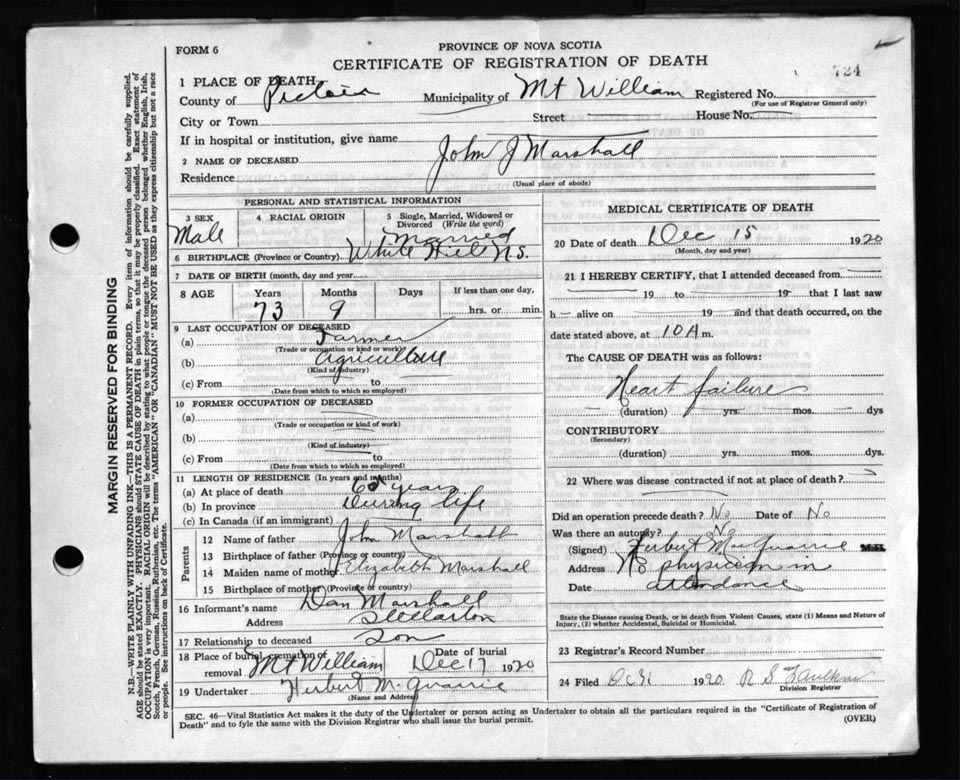 FORM 6
PROVINCE OF NOVA SCOTIA
CERTIFICATE OF REGISTRATION OF DEATH
724
1 PLACE OF DEATH,
County of Pictou Municipality of Mt William Registered No.
(For use of Registrar General only)
City or Town Street House No.
If in hospital or institution, give name
2 NAME OF DECEASED John J Marshall
Residence
(Usual place of abode)
PERSONAL AND STATISTICAL INFORMATION
3 SEX
Male
4 RACIAL ORIGIN
5 Single, Married, Widowed or Divorced (Write the word)
Married
6 BIRTHPLACE (Province or Country) White Hill N.S.
7 DATE OF BIRTH (month, day and year)
8 AGE Years Months Days If less than one day,
73 9 hrs. or min.
9 LAST OCCUPATION OF DECEASED
(a) Farmer
(Trade or occupation or kind of work)
(b) Agriculture
(Kind of industry)
(c) From to
(Date from which to which so employed)
10 FORMER OCCUPATION OF DECEASED
(a)
(Trade or occupation or kind of work)
(b)
(Kind of industry)
(c) From to
(Date from which to which so employed)
11 LENGTH OF RESIDENCE (In years and months)
(a) At place of death years
(b) In province During life
(c) In Canada (if an immigrant)
Parents
12 Name of father John Marshall
13 Birthplace of father (Province or country)
14 Maiden name of mother Elizabeth Marshall
15 Birthplace of mother (Province or country)
16 Informant's name Dan Marshall
Address Stellarton
17 Relationship to deceased Son
18 Place of burial, cremation or removal Mt William
Date of burial Dec 17 1920
19 Undertaker Herbert McQuarrie
(Name and Address)
MEDICAL CERTIFICATE OF DEATH
20 Date of death Dec 15 1920
(Month, day and year)
21 I HEREBY CERTIFY, that I attended deceased from
19 to 19 that I last saw
h alive on 19 and that death occurred, on
date stated above, at 10 A m.
The CAUSE OF DEATH was as follows:
Heart failure
(duration) yrs. mos. dys
CONTRIBUTORY
(Secondary)
(duration) yrs. mos. dys
22 Where was disease contracted if not at place of death?
Did an operation precede death? No Date of No
Was there an autopsy? No
(Signed) Herbert McQuarrie M.D.
Address No physician in
Date attendance
State the Disease causing Death, or in Death from Violent Causes, state (1) Means and Nature of
Injury, (2) whether Accidental, Suicidal or Homicidal.
23 Registrar's Record Number
24 Filed 1920 R S Faulkner
Division Registrar
SEC. 46—Vital Statistics Act makes it the duty of the Undertaker or person acting as Undertaker to obtain all the particulars required in the "Certificate of Registration of
Death" and to fyle the same with the Division Registrar who shall issue the burial permit. (OVER)
MARGIN RESERVED FOR BINDING
N.B.—WRITE PLAINLY WITH UNFADING INK—THIS IS A PERMANENT RECORD. Every item of information should be carefully supplied.
AGE should be stated EXACTLY. PHYSICIANS should STATE CAUSE OF DEATH in plain terms, so that it may be properly classified. Exact statement of
OCCUPATION is very important. RACIAL ORIGIN will be described by stating to what people or tongue the deceased person belonged whether English, Irish,
Scotch, French, German, Russian, Ruthenian, etc. The terms "AMERICAN" OR "CANADIAN" MUST NOT BE USED as they express citizenship but not a race
or people. See instructions on back of Certificate.